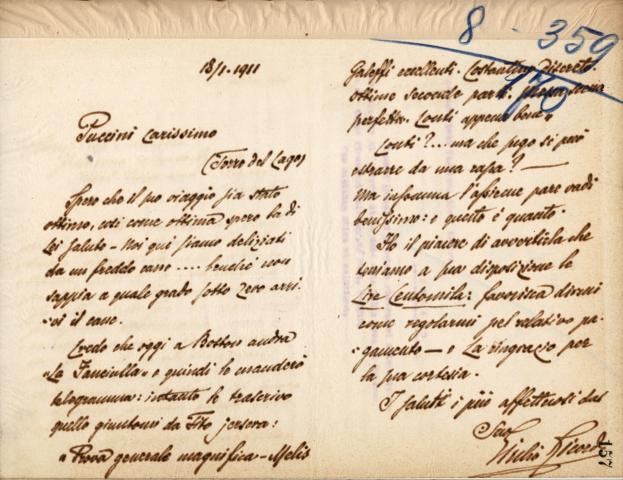 13/1-1911
Puccini Carissimo
(Torre del Lago)
Spero che il suo viaggio sia stato
ottimo, così come ottima spero la di
Lei salute - Noi qui siamo deliziati
da un freddo cane .... benchè non
sappia a quale grado sotto zero arri-
-vi il cane.
Credo che oggi a Boston andrà
"La Fanciulla" e quindi le manderò
telegramma: intanto le trascrivo
quello giuntomi da Tito jersera:
"Prova generale magnifica - Melis
8 - 359
170
Galeffi eccellenti. Costantino discreto.
Ottime seconde parti. Messa scena
perfetta. Conti appena bene"
Conti?... ma che sugo si può
estrarre da una rapa? —
Ma insomma l'assieme pare vadi
benissimo: e questo è quanto.
Ho il piacere di avvertirla che
teniamo a sua disposizione le
Lire Centomila: favorisca dirmi
come regolarmi pel relativo pa-
-gamento — e La ringrazio per
la sua cortesia.
I saluti i più affettuosi dal
Suo
Giulio Ricordi
157